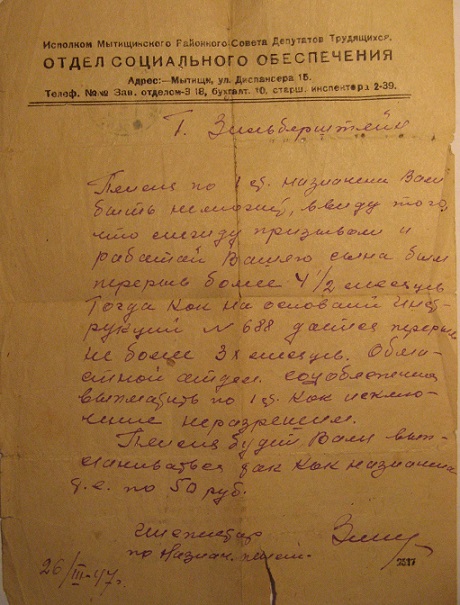 Исполком Мытищинского Районного Совета Депутатов Трудящихся.
ОТДЕЛ СОЦИАЛЬНОГО ОБЕСПЕЧЕНИЯ
Адрес:—Мытищи, ул. Диспансера 15.
Телеф. №№ Зав. отделом-3 18, бухгалт. 10, старш. инспектора 2-39.
Г. Зильберштейн
Пенсия по 1 ст. назначена Вам
быть не может, ввиду того,
что между призывом и
работой Вашего сына был
перерыв более 4 1/2 месяцев
Тогда как на основании Инст-
рукции № 688 дается перерыв
не более 3х месяцев. Обла-
стной отдел соцобеспечения
выплатить по 1 ст. как исклю-
чение не разрешил.
Пенсия будет Вам вып-
лачиваться так как назначена
т.е. по 50 руб.
Инспектор
по назнач. пенсий.
26/III-47г.